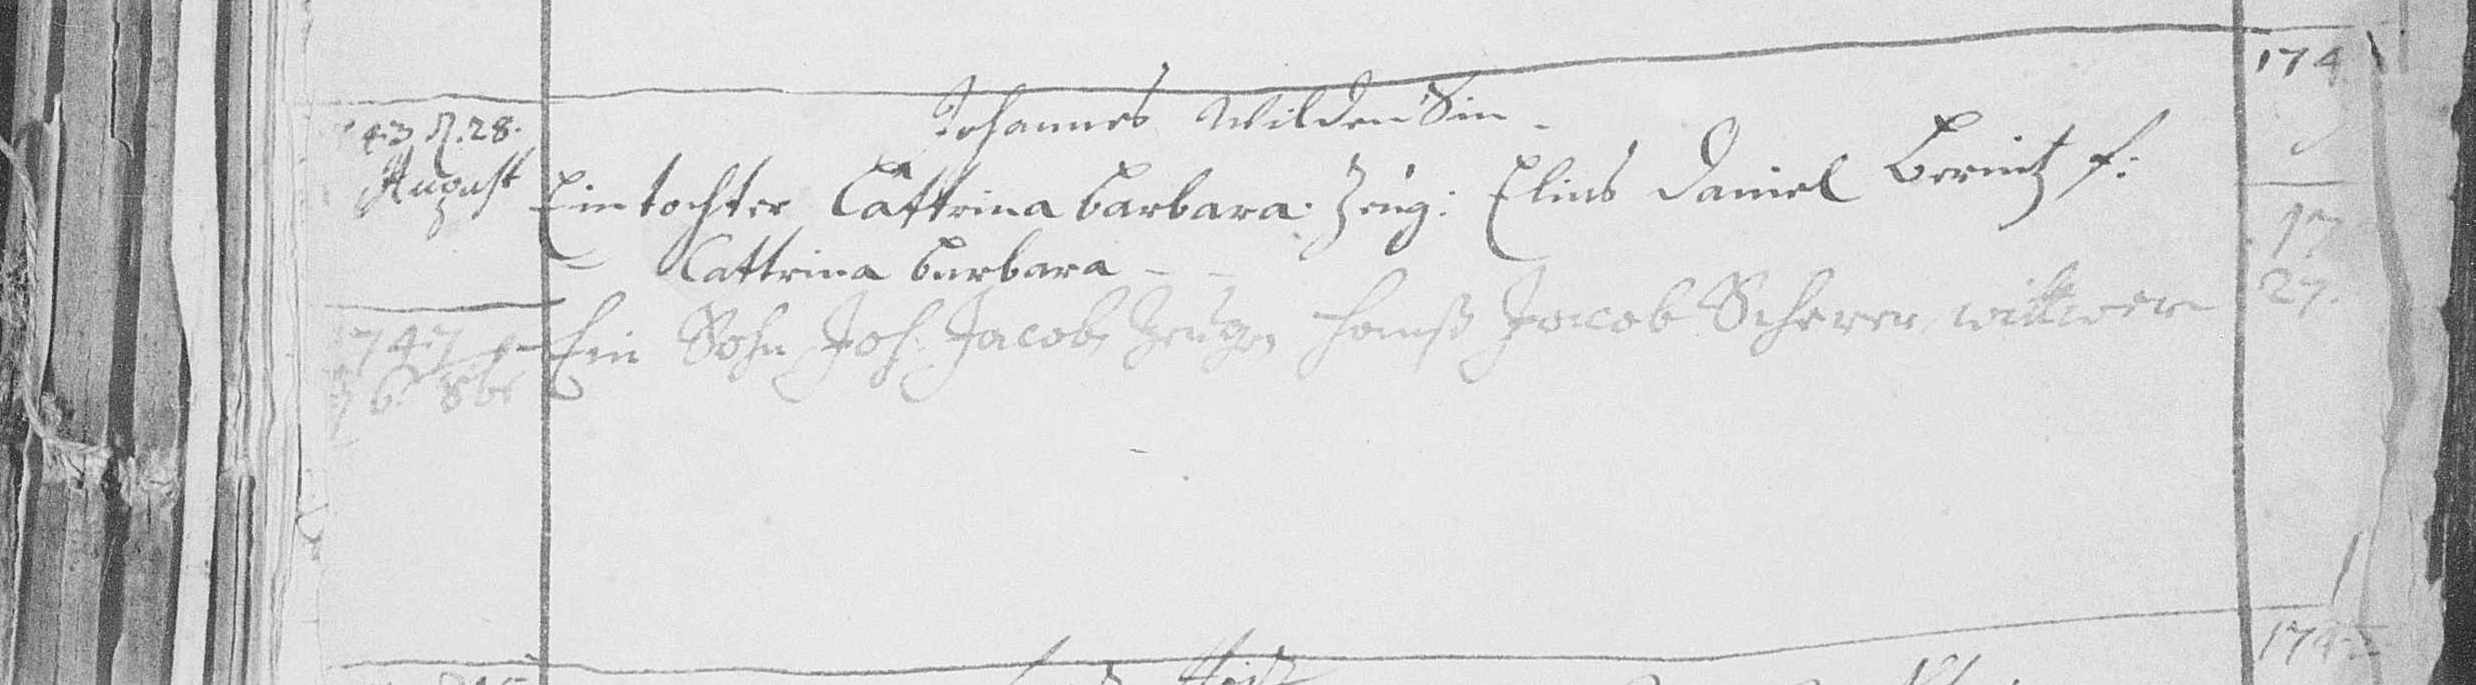 174
Johannes Wildensin
43 d. 28.
August
Ein tochter Cattrina barbara. Zeug: Elias Daniel f:
Cattrina barbara - -
17
27.
1747
Ein Sohn Joh. Jacob, Zeugen Hanß Jacob Scherer, wittwer
174